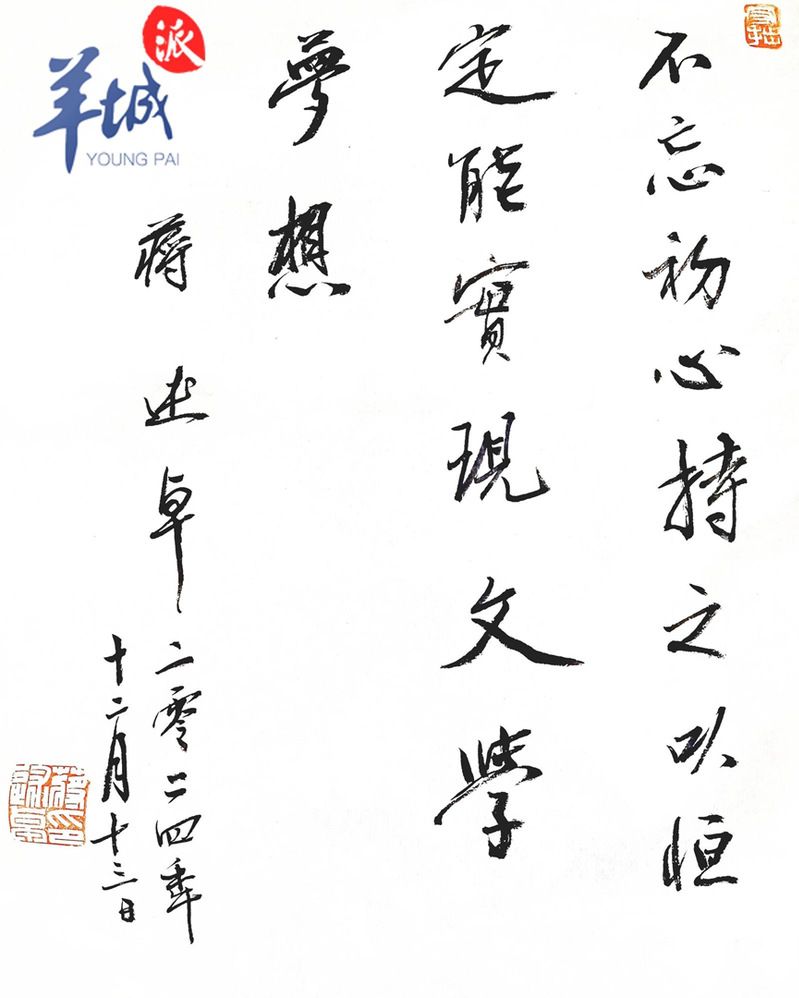 不忘初心持之以恒
定能實現文學
夢想
蔣述卓
二零二四年
十二月十三日
羊城派
YOUNG PAI